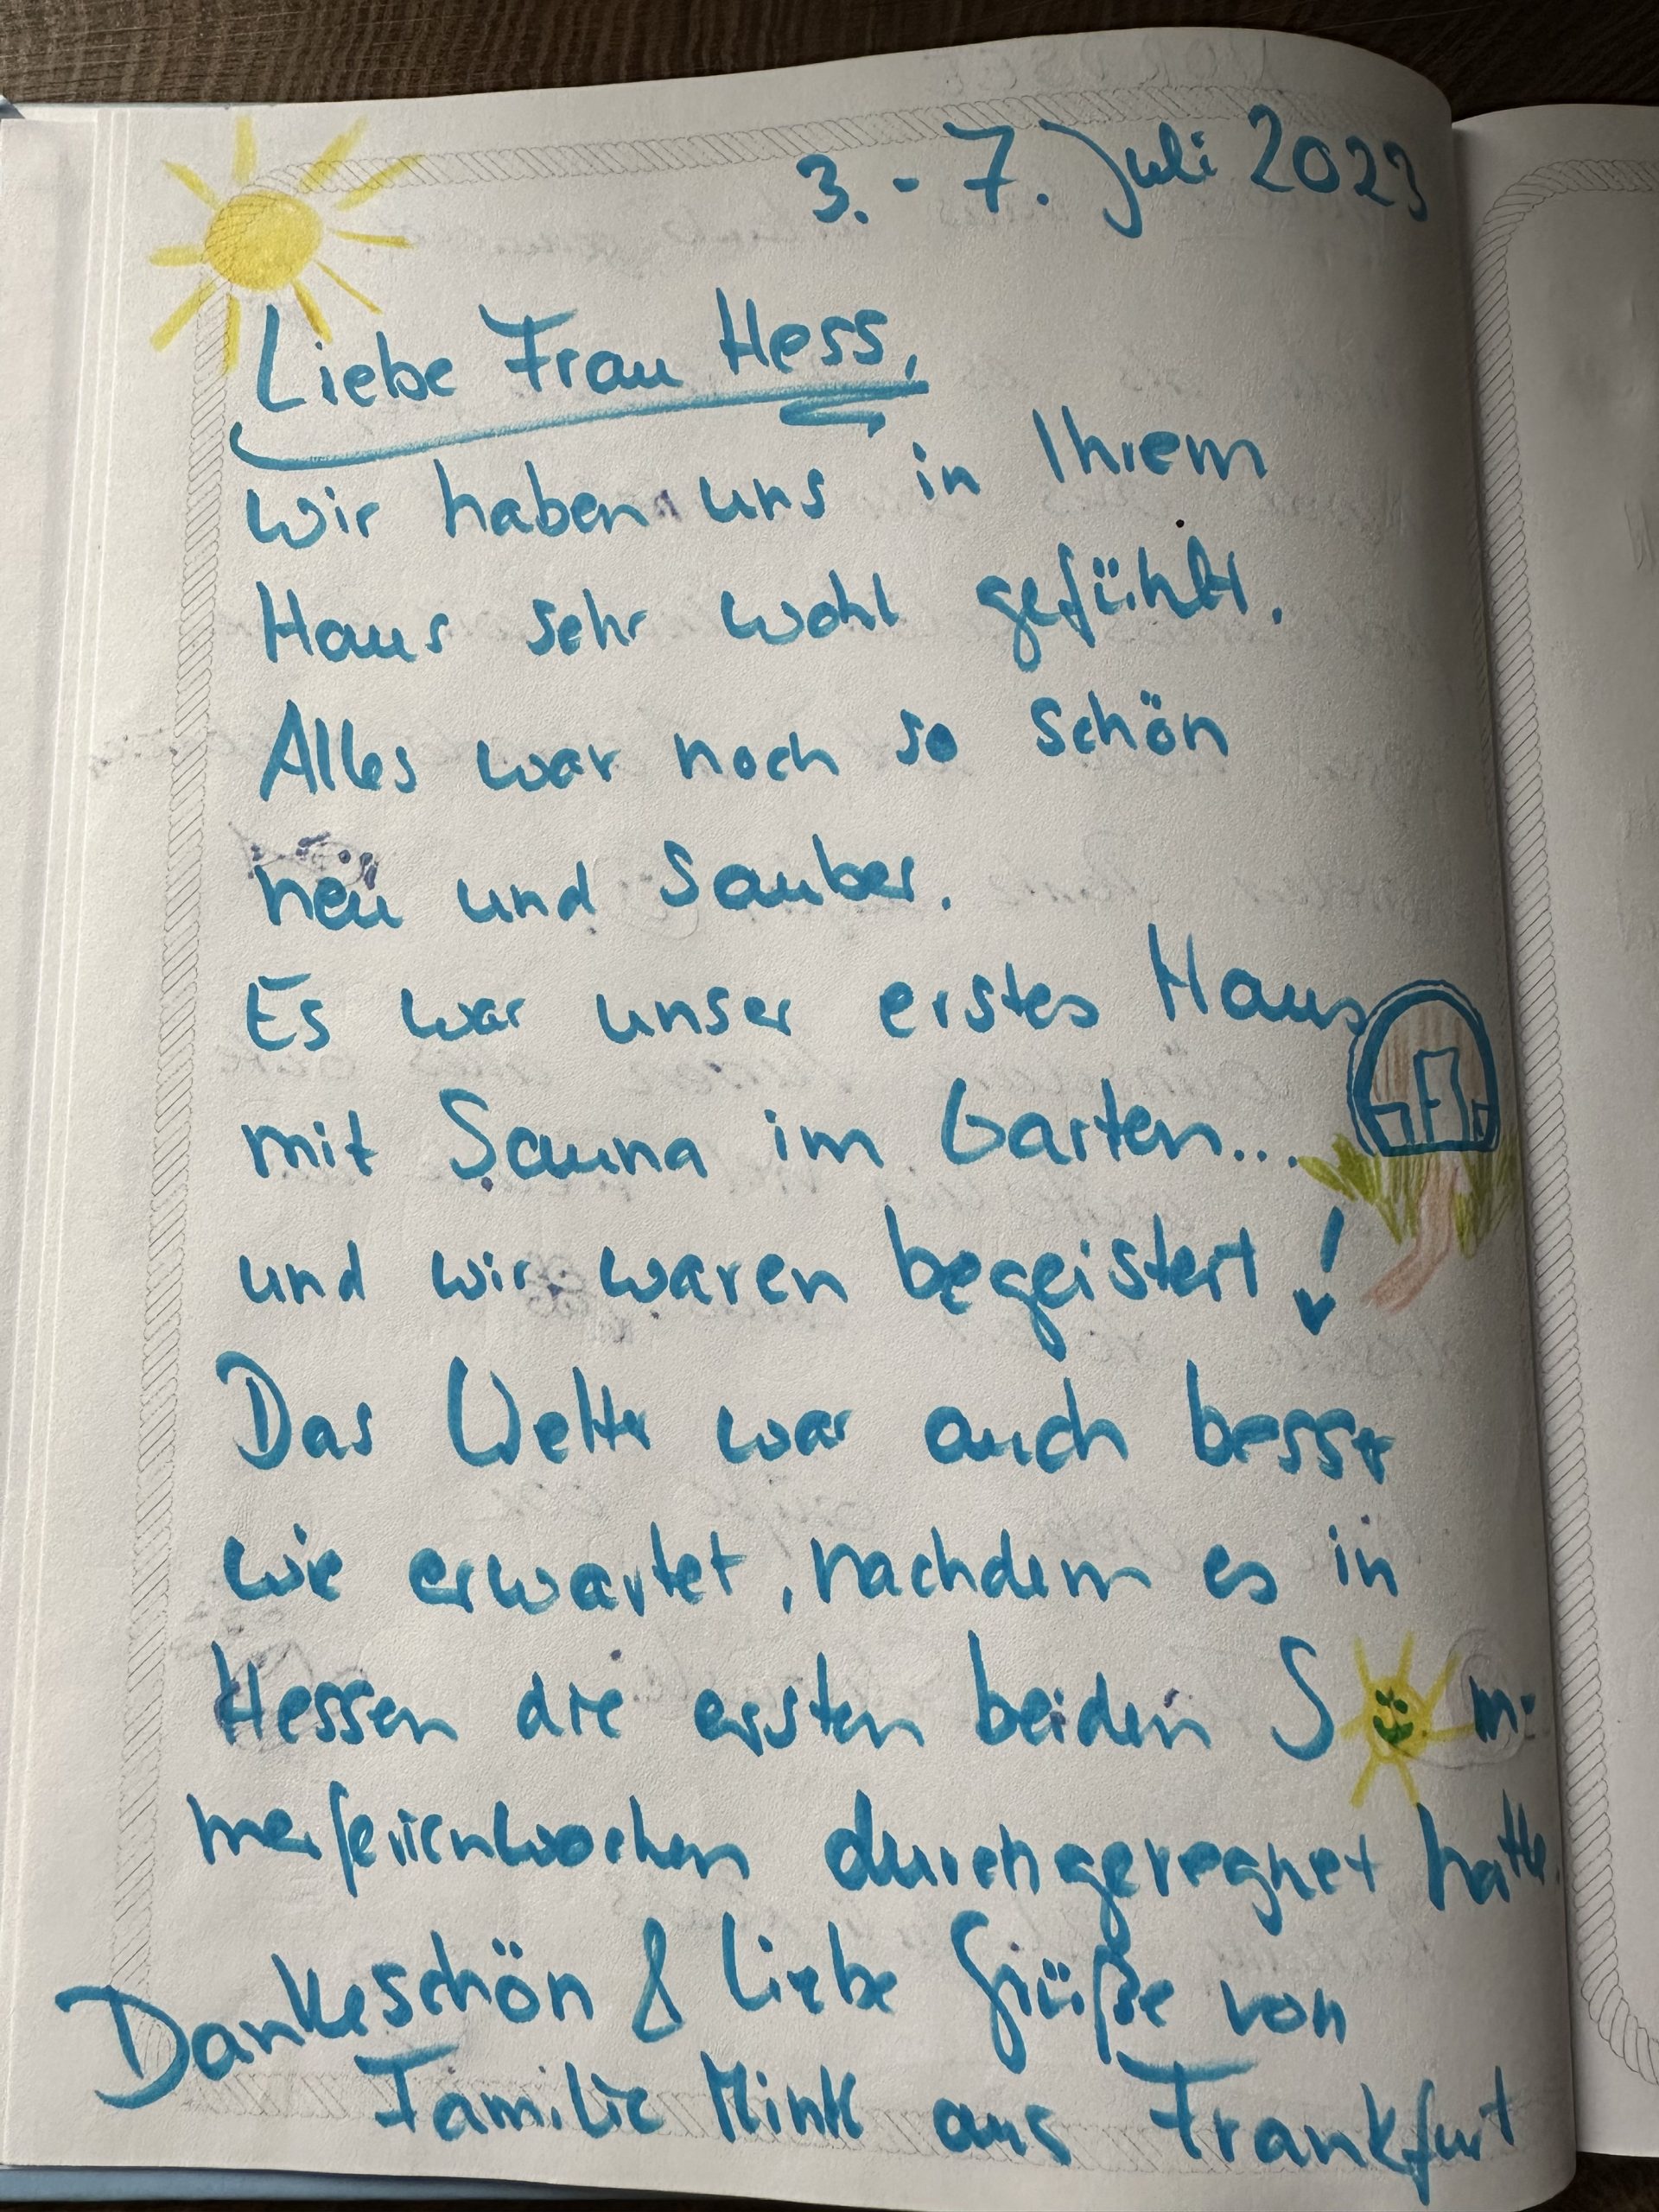 3. - 7. Juli 2023
Liebe Frau Hess,
wir haben uns in Ihrem
Haus sehr wohl gefühlt.
Alles war noch so schön
neu und sauber.
Es war unser erstes Haus
mit Sauna im Garten...
und wir waren begeistert!
Das Wetter war auch besser
wie erwartet, nachdem es in
Hessen die ersten beiden Som-
merferienwochen durchgeregnet hatte.
Dankeschön & liebe Grüße von
Familie Mink aus Frankfurt